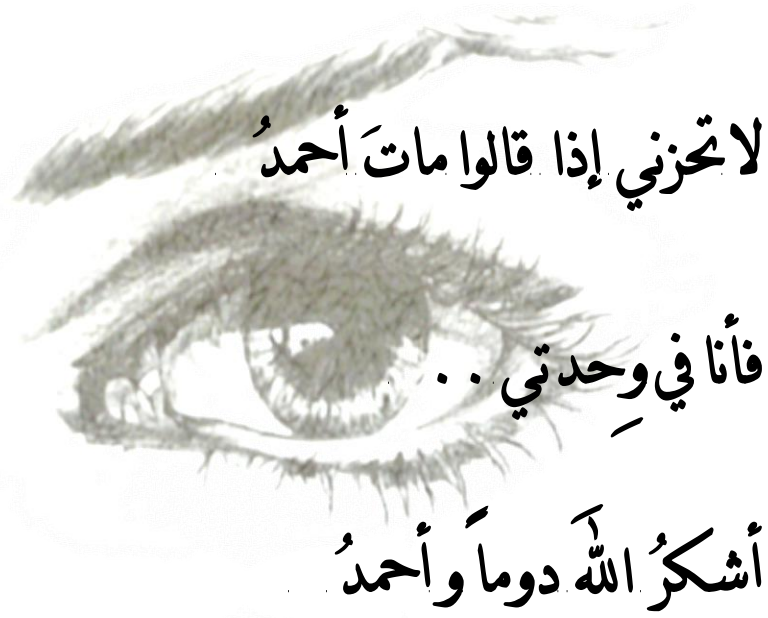 لا تحزني إذا قالوا ماتَ أحمدُ
فأنا في وِحدتي . .
أشكرُ اللّٰهَ دوماً وأحمدُ